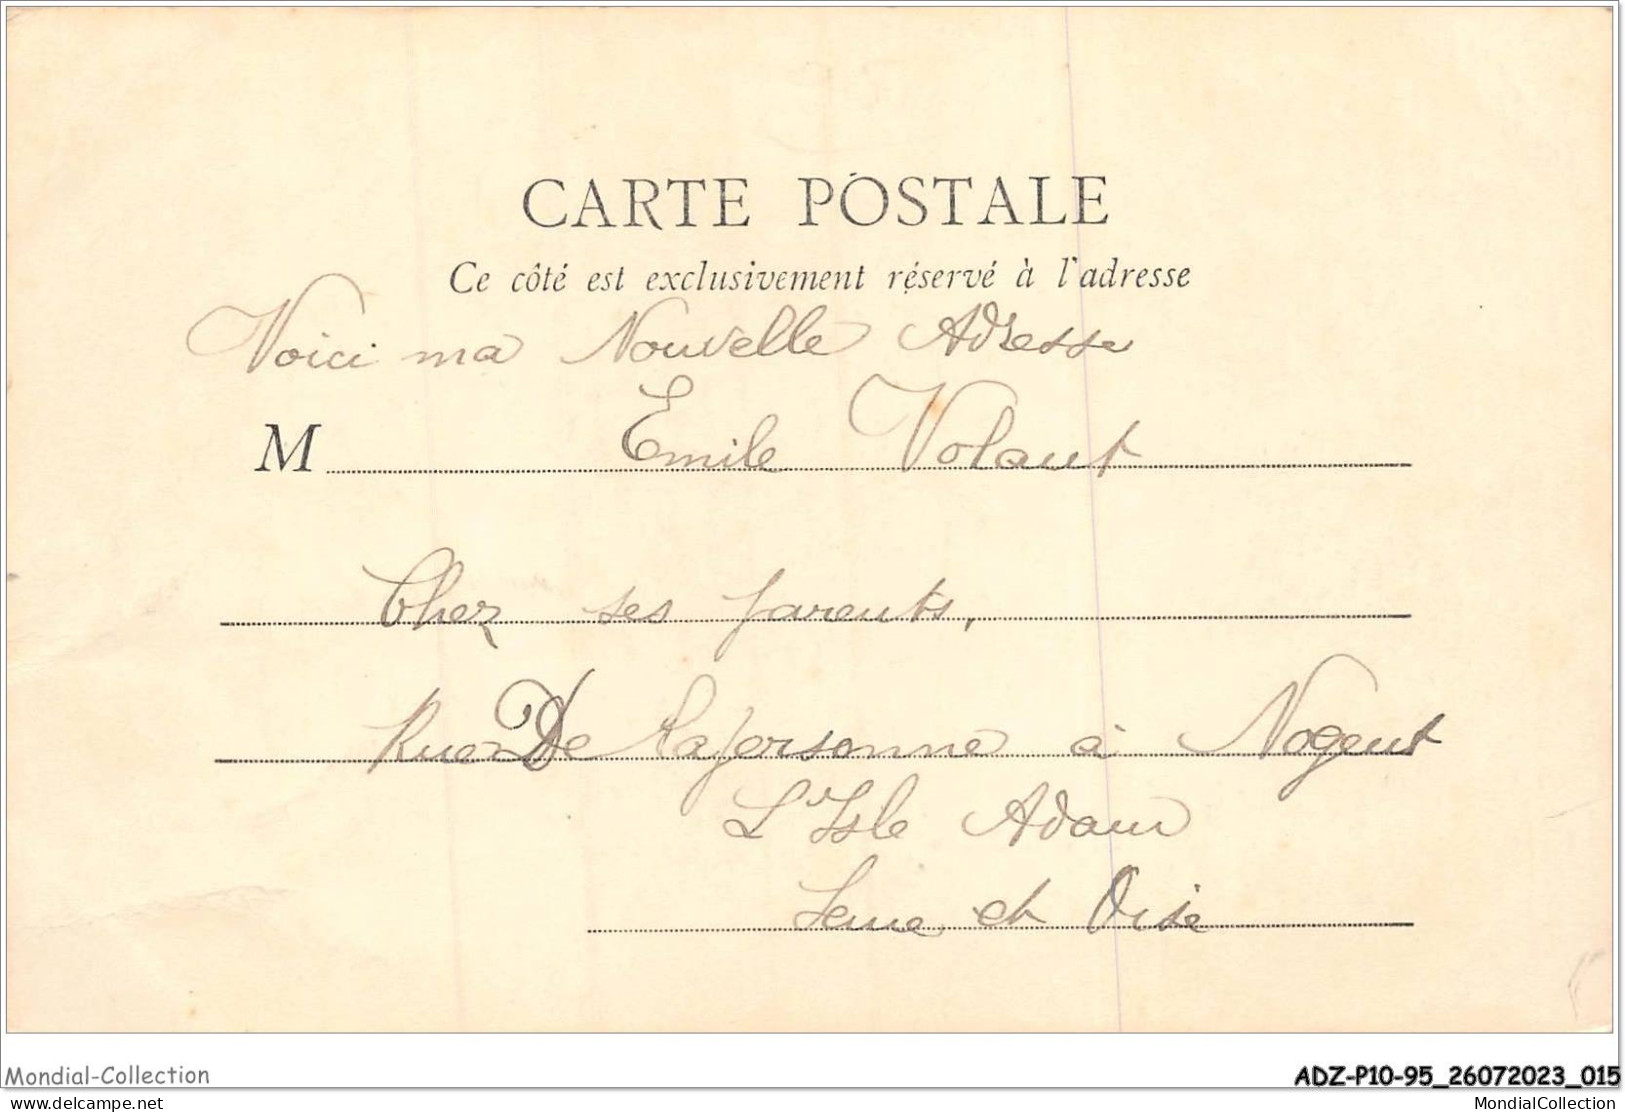 CARTE POSTALE
Ce côté est exclusivement réservé à l'adresse
Voici ma Nouvelle Adresse
M Emile Volant
Chez ses parents,
Rue De à Nogent
L'Isle Adam
Seine et Oise
Mondial-Collection
ADZ-P10-95_26072023_015
www.delcampe.net
MondialCollection